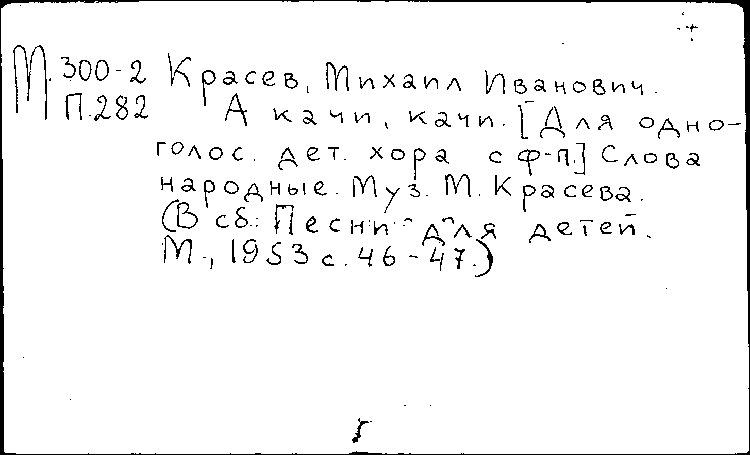 М.300-2 Красев, Михаил Иванович.
П.282 А качи, качи. [Для одно-
голос. дет. хора с ф-п.] Слова
народные. Муз. М. Красева.
(В сб.: Песни для детей.
М., 1953 с. 46-47.)